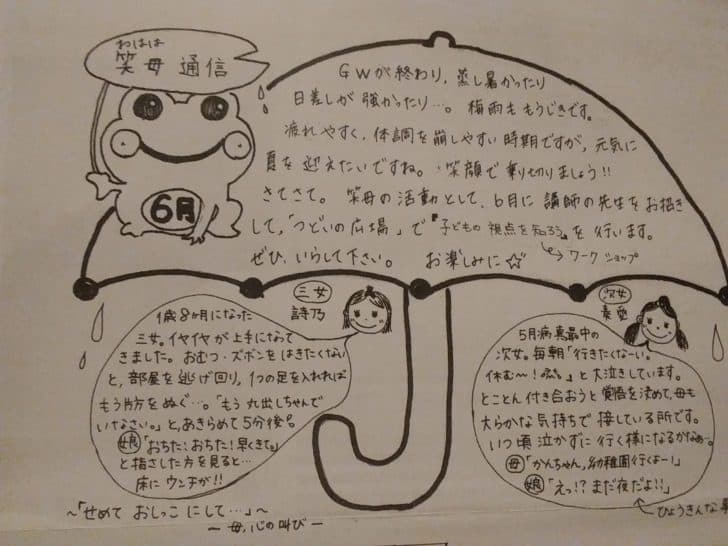 わはは
笑母通信
6月
GWが終わり、蒸し暑かったり
日差しが強かったり…。梅雨ももうじきです。
疲れやすく、体調を崩しやすい時期ですが、元気に
夏を迎えたいですね。笑顔で乗り切りましょう!!
さてさて。笑母の活動として、6月に講師の先生をお招き
して、「つどいの広場」で『子どもの視点を知ろう』を行います。
ワークショップ
ぜひ、いらして下さい。お楽しみに☆
三女
詩乃
1歳8ヶ月になった
三女。イヤイヤが上手になって
きました。おむつ・ズボンをはきたくない
と、部屋を逃げ回り、1つの足を入れれば
もう片方をぬぐ…。「もう丸出しちゃんで
いなさい。」と、あきらめて5分後。
娘「おちた!おちた!早くきて。」
と指さした方を見ると…
床にウンチが!!
~「せめておしっこにして…」~
ー母、心の叫びー
次女
5月病真最中の
次女。毎朝「行きたくなーい。
休む〜!」と大泣きしています。
とことん付き合おうと覚悟を決めて、母も
大らかな気持ちで接している所です。
いつ頃泣かずに行く様になるかなぁ〜。
母「かんちゃん、幼稚園行くよー!」
娘「えっ!?まだ夜だよ!!」
ひょうきんな